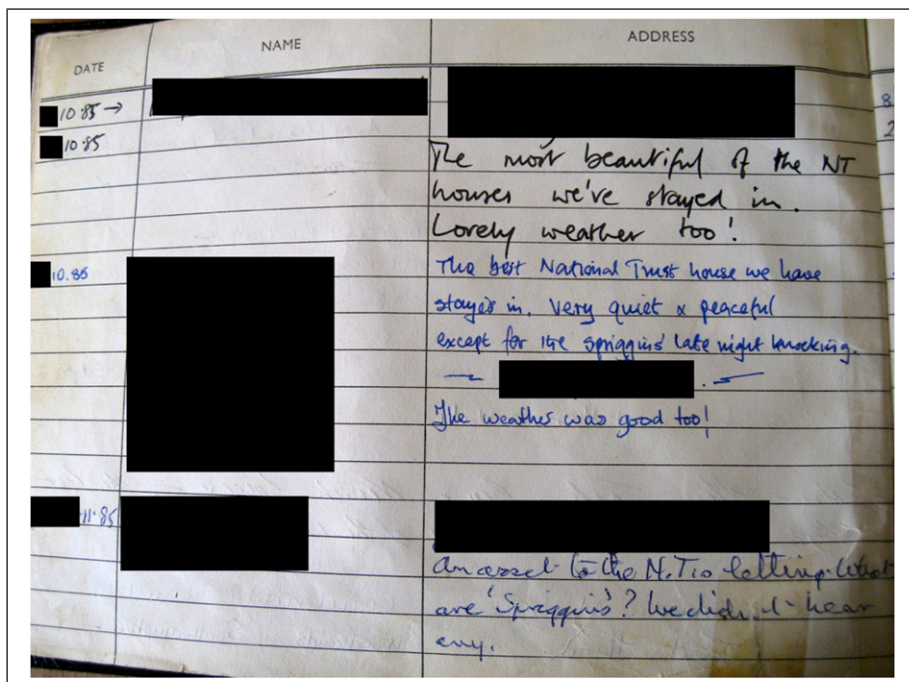 DATE NAME ADDRESS
10.85 → 8
10.85 2
The most beautiful of the NT
houses we've stayed in.
Lovely weather too!
10.85 The best National Trust house we have
stayed in. Very quiet & peaceful
except for the spriggins' late night knocking.
The weather was good too!
11.85
An asset to the N.T.'s letting. What
are 'Spriggins'? We didn't hear
any.